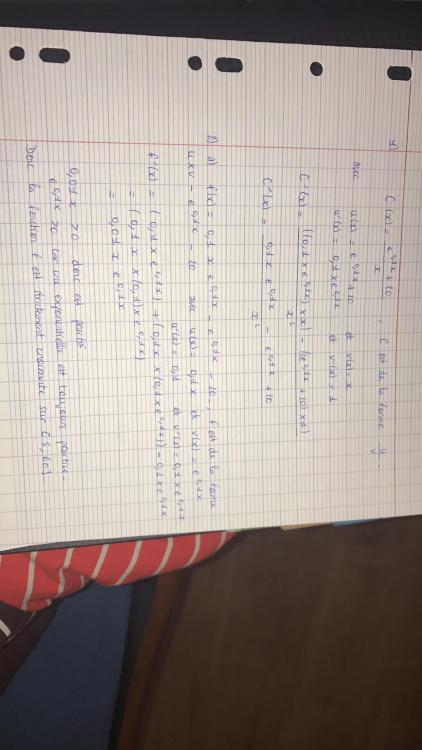 1) C(x) = (e^0,1x + 20) / x , C est de la forme u/v.
avec u(x) = e^0,1x + 20 et v(x) = x
u'(x) = 0,1 x e^0,1x et v'(x) = 1
C'(x) = (((0,1 x e^0,1x) x x) - ((e^0,1x + 20) x 1)) / x²
C'(x) = (0,1 x e^0,1x - e^0,1x + 20) / x²
2) a) f(x) = 0,1 x e^0,1x - e^0,1x - 20 , f est de la forme
u x v - e^0,1x - 20 avec u(x) = 0,1x et v(x) = e^0,1x
u'(x) = 0,1 et v'(x) = 0,1 x e^0,1x
f'(x) = (0,1 x e^0,1x) + (0,1x x (0,1 x e^0,1x)) - 0,1 x e^0,1x
= (0,1 x x (0,1) x e^0,1x)
= 0,01 x e^0,1x
0,01x > 0 donc est positif
e^0,1x > 0 car une exponentielle est toujours positive.
Donc la fonction f est strictement croissante sur [5 ; 60].